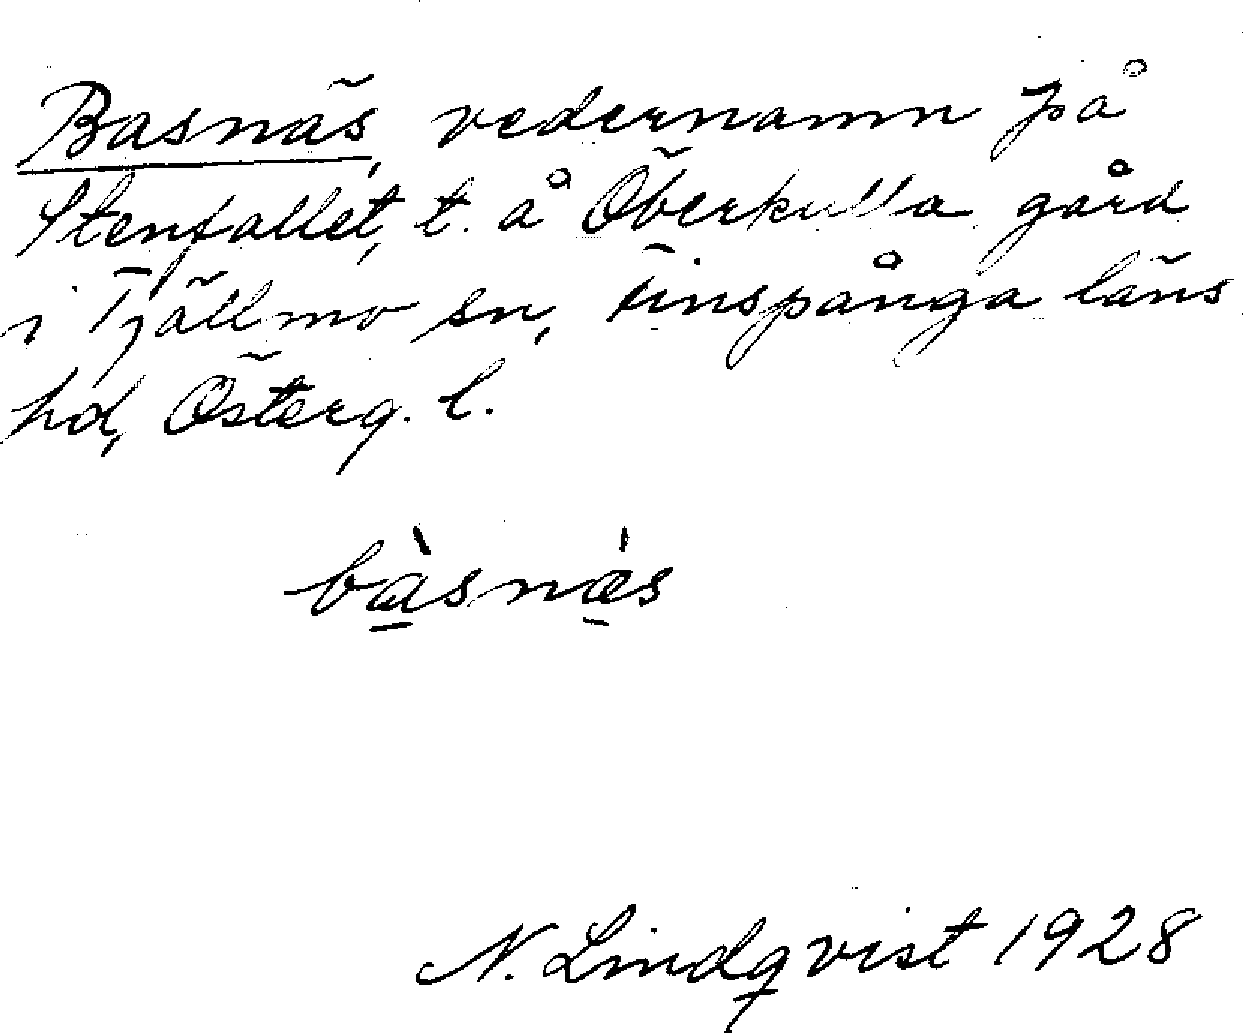 Basnäs, vedernamn på
Stenfallet, t. å Överkulla gård
i Tjällmo sn, Finspånga läns
hd, Österg. l.
bàsnæ̀s
N. Lindqvist 1928